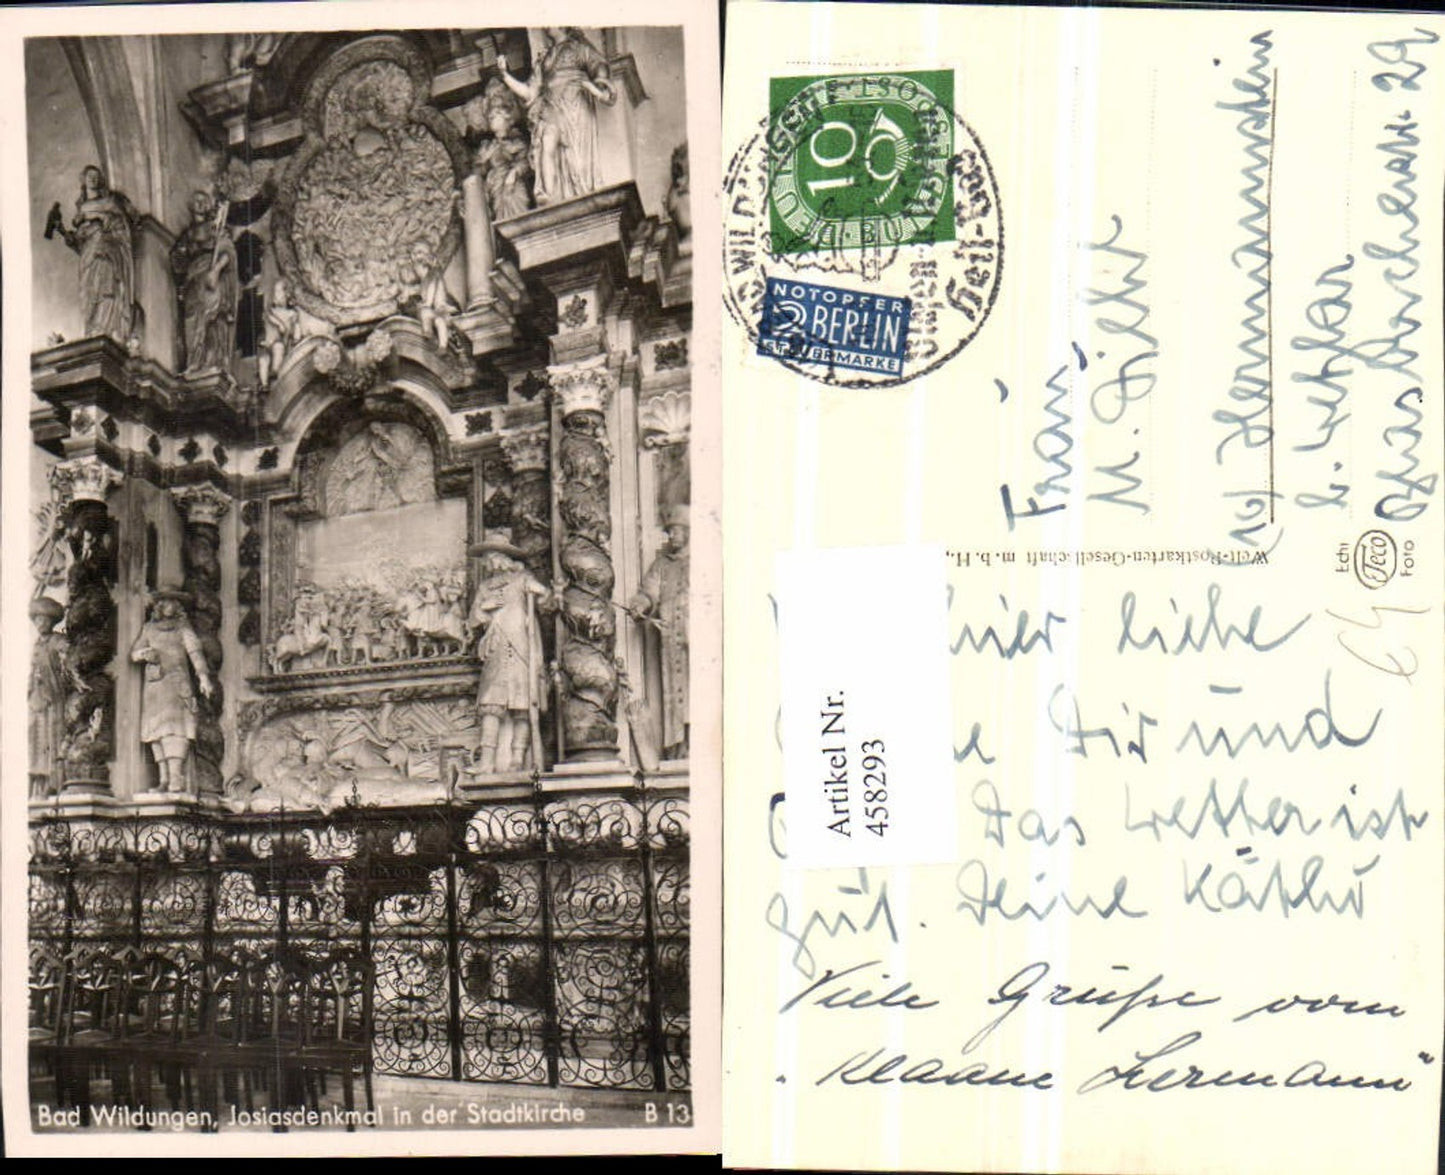 Bad Wildungen, Josiasdenkmal in der Stadtkirche B 13
DEUTSCHE BUNDESPOST
10
BAD WILDUNGEN
Heil-Bad
NOTOPFER
2 BERLIN
STEUERMARKE
Frau
M. Diehl
(16) Hermannstein
b. Wetzlar
Grossbuchenstr. 29
Welt-Postkarten-Gesellschaft m. b. H.,
Echt
Foto
Artikel Nr.
458293
hier liebe
Dir und
Das Wetter ist
gut. Deine Käthe
Viele Grüße vom
"Klaane Hermann"